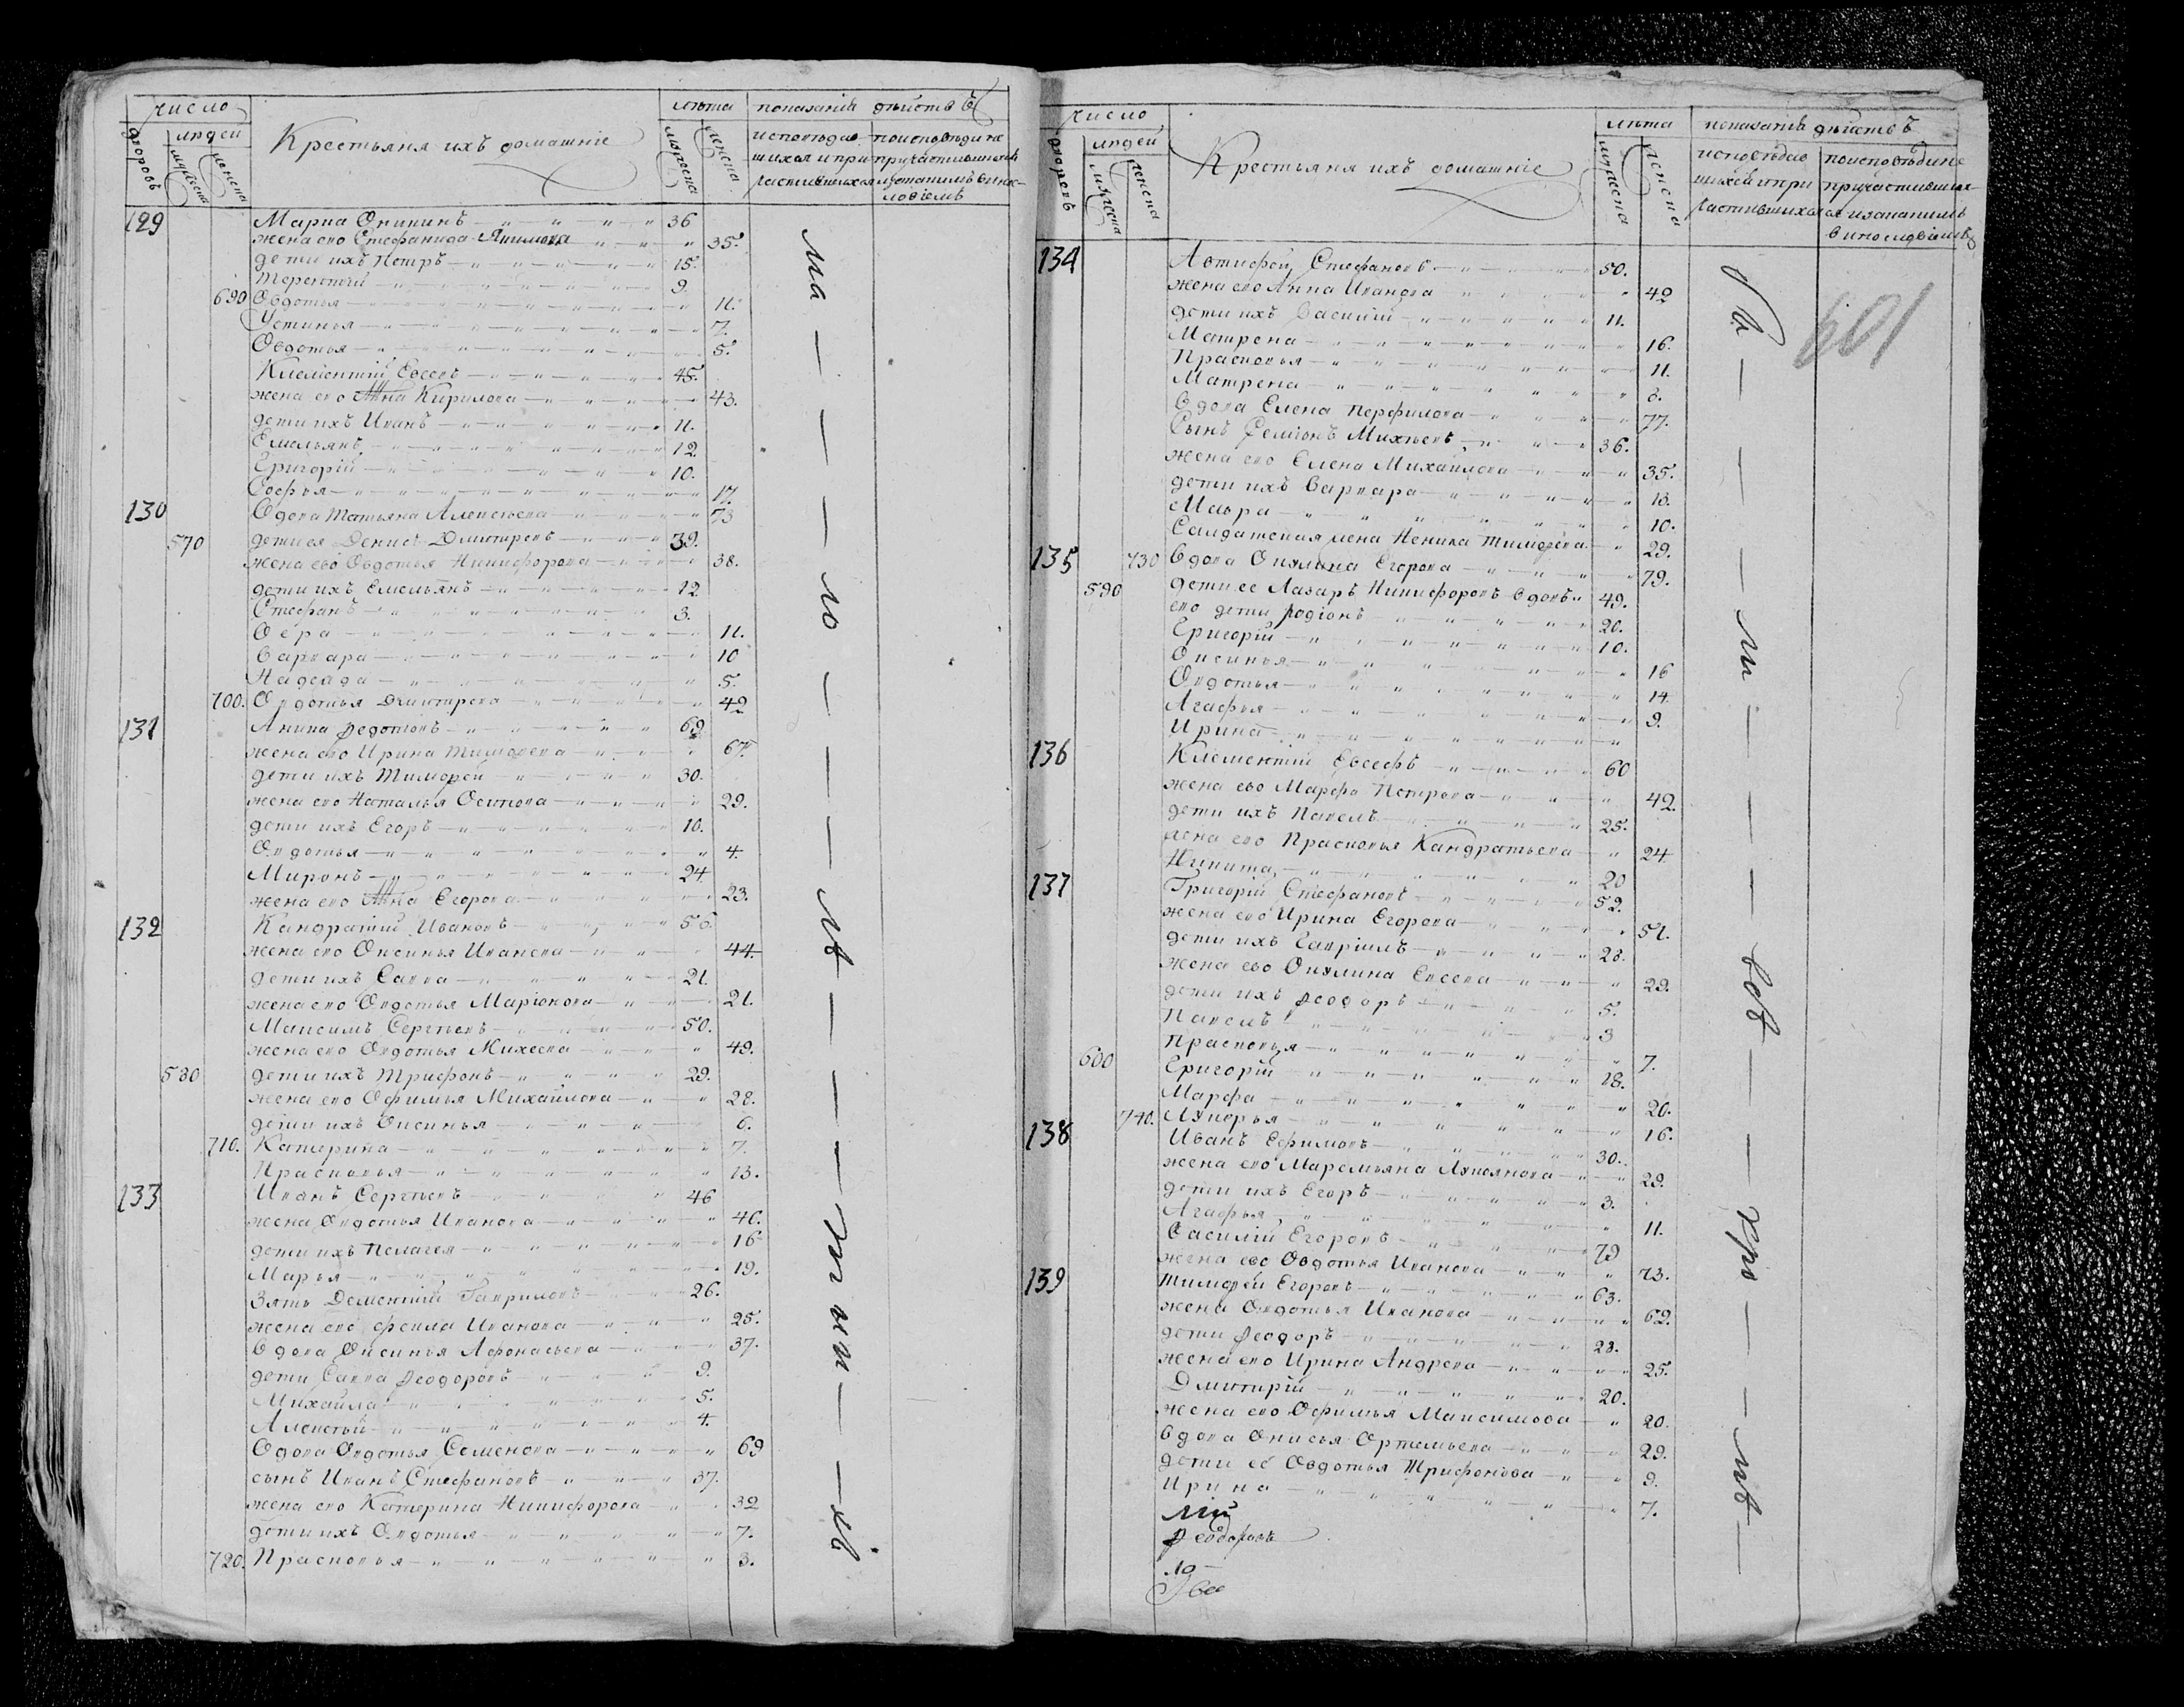 число
людей
дворовъ
мужеска
женска
Крестьяня ихъ домашние
лѣта
мужеска
женска
показанія дѣйствъ
129 Марка Оникинъ 36
жена ево Стефанида Якимова 35.
дети ихъ Петръ 15.
Терентій 9.
690 Овдотья 11.
Устинья 7.
Овдотья 5.
Клементій Евсевъ 45.
жена ево Анна Кирилова 43.
дети ихъ Иванъ 11.
Емельянъ 12.
Григорій 10.
Софья 17.
130 Вдова Татьяна Алексеева 73
570 дети ея Денисъ Дмитревъ 39.
жена ево Овдотья Никифорова 38.
дети ихъ Емельянъ 12
Стефанъ 3.
Вера 11.
Варвара 10
Надежда 5.
700. Овдотья Дмитрева 42
131 Аника Федотовъ 69
жена ево Ирина Тимофева 67.
дети ихъ Тимофей 30.
жена ево Наталья Осипова 29.
дети ихъ Егоръ 10.
Овдотья 4.
Миронъ 24
жена ево Анна Егорова 23.
132 Кандратий Ивановъ 56
жена ево Оксинья Иванова 44.
дети ихъ Савва 21.
жена ево Овдотья Маріонова 21.
Максимъ Сергѣевъ 50.
жена ево Овдотья Михеева 49.
580 дети ихъ Трифонъ 29.
жена ево Офимья Михайлова 28.
дети ихъ Оксинья 6.
710. Катерина 7.
Прасковья 13.
133 Иванъ Сергѣевъ 46
жена Овдотья Иванова 46.
дети ихъ Пелагея 16
Марья 19.
Зять Дементій Гавриловъ 26.
жена ево Фекла Иванова 25.
Вдова Оксинья Афонасьева 37.
дети Савва Феодоровъ 9.
Михайла 5.
Алексѣй 4.
Вдова Овдотья Семенова 69
сынъ Иванъ Стефановъ 37.
жена ево Катерина Никифорова 32
дети ихъ Овдотья 7.
720. Прасковья 3.
число
людей
дворовъ
мужеска
женска
Крестьяня ихъ домашніе
лѣта
мужеска
женска
показанія дѣйствъ
601
134 Актифей Стефановъ 50.
жена ево Анна Иванова 42
дети ихъ Василий 11.
Матрена 16.
Прасковья 11.
Матрена 6.
Вдова Елена Перфилова 77.
Сынъ Семіонъ Михѣевъ 36.
жена ево Елена Михайлова 35.
дети ихъ Варвара 13.
Мавра 10.
Салдатская жена Ненила Тимофева 29.
135 730 Вдова Окулина Егорова 79.
590 дети ее Лазаръ Никифоровъ вдовъ 49.
ево дети Родіонъ 20.
Григорій 10.
Оксинья 16
Овдотья 14.
Агафья 9.
Ирина
136 Клементій Евсефъ 60
жена ево Марфа Петрова 42.
дети ихъ Павелъ 25.
жена ево Прасковья Кандратьева 24
Никита 20
137 Григорій Стефановъ 52.
жена ево Ирина Егорова 51.
дети ихъ Гавріилъ 28.
жена ево Окулина Евсева 29.
дети ихъ Феодоръ 5.
Павелъ 3
Прасковья 7.
600 Григорій 18.
Марфа 20.
740. Лукерья 16.
138 Иванъ Ефимовъ 30.
жена ево Маремьяна Лукоянова 29.
дети ихъ Егоръ 3.
Агафья 11.
Василій Егоровъ 79
жена ево Овдотья Иванова 73.
139 Тимофей Егоровъ 63.
жена Овдотья Иванова 62.
дети Феодоръ 28.
жена ево Ирина Андрева 25.
Дмитрій 20.
жена ево Офимья Максимова 20.
Вдова Анисья Ортемьева 29.
дети её Овдотья Трифонова 9.
Ирина 7.
лій
Феодоровъ
ло